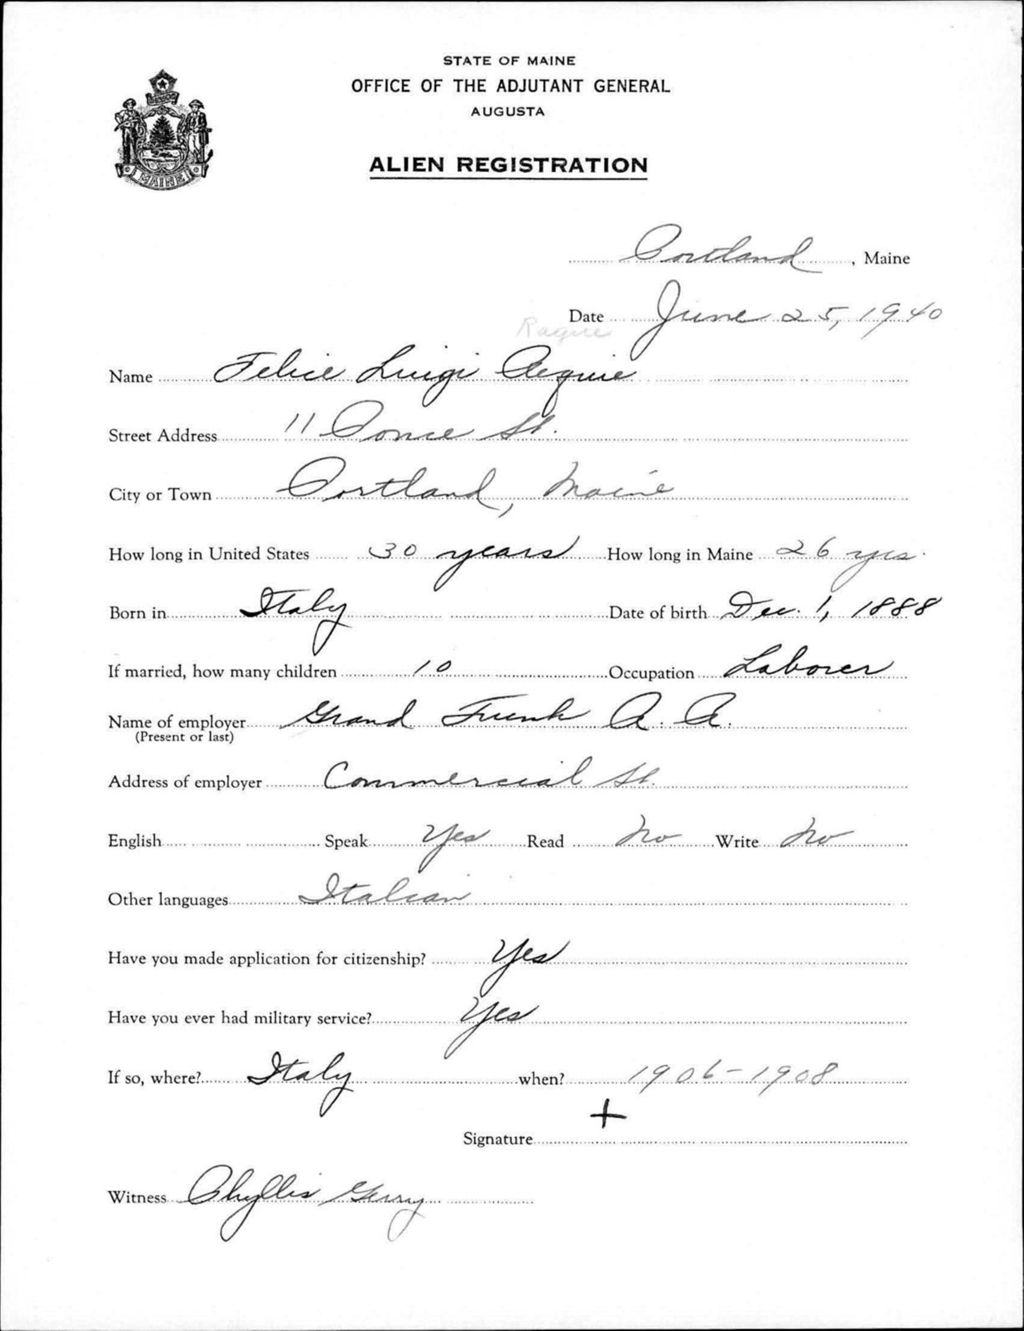 STATE OF MAINE
OFFICE OF THE ADJUTANT GENERAL
AUGUSTA
ALIEN REGISTRATION
MAINE
Portland, Maine
Date June 25, 1940
Rague
Name Felice Luigi
Street Address 11 Ponce St.
City or Town Portland, Maine
How long in United States 30 years How long in Maine 26 yrs.
Born in Italy Date of birth Dec. 1, 1888
If married, how many children 10 Occupation Laborer
Name of employer Grand Trunk R. R.
(Present or last)
Address of employer Commercial St.
English Speak Yes Read No Write No
Other languages Italian
Have you made application for citizenship? Yes
Have you ever had military service? Yes
If so, where? Italy when? 1906-1908
+
Signature
Witness Phyllis Gerry